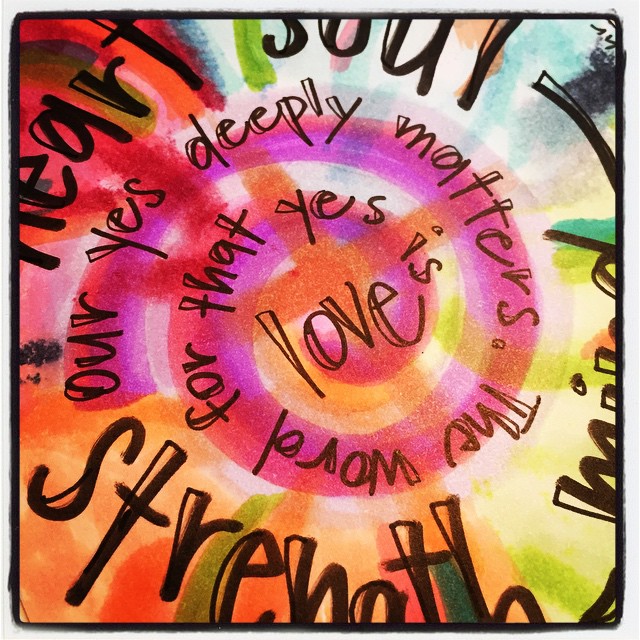 heart
soul
mind
strength
our yes deeply matters. The word
for that yes is
love